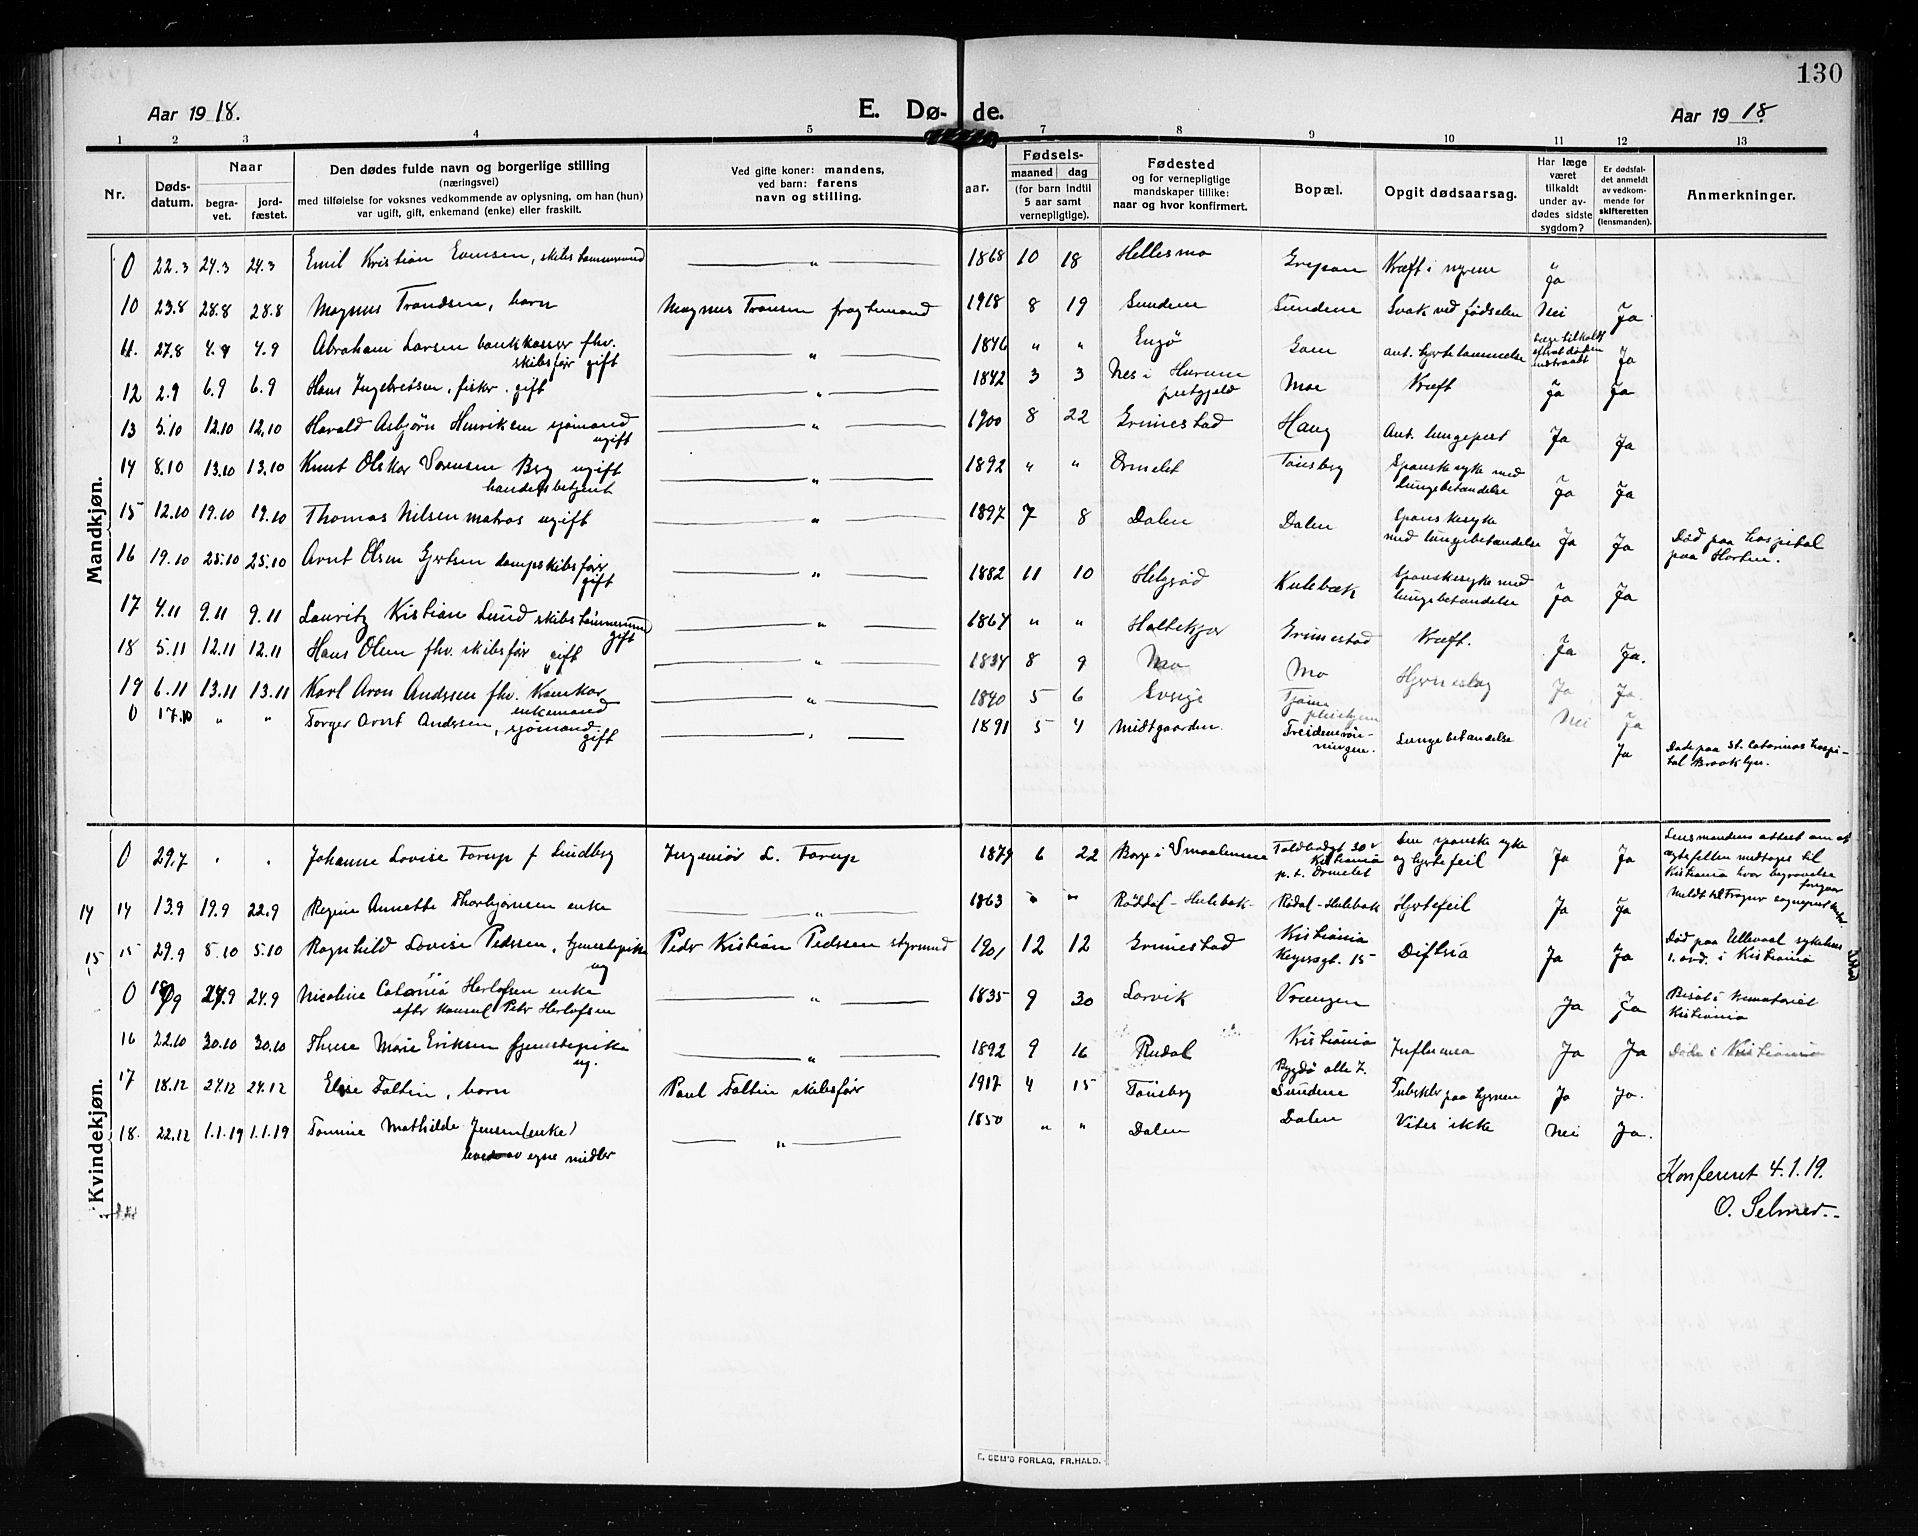 130
Aar 1918.
E. Dø- de.
Aar 1918.
1 2 3 4 5 7 8 9 10 11 12 13
Nr.
Døds-
datum.
Naar
begra-
vet.
jord-
fæstet.
Den dødes fulde navn og borgerlige stilling
(næringsvei)
med tilføielse for voksnes vedkommende av oplysning, om han (hun)
var ugift, gift, enkemand (enke) eller fraskilt.
Ved gifte koner: mandens,
ved barn: farens
navn og stilling.
aar.
Fødsels-
maaned dag
(for barn indtil
5 aar samt
vernepligtige).
Fødested
og for vernepligtige
mandskaper tillike:
naar og hvor konfirmert.
Bopæl.
Opgit dødsaarsag.
Har læge
været
tilkaldt
under av-
dødes sidste
sygdom?
Er dødsfal-
det anmeldt
av vedkom-
mende for
skifteretten
(lensmanden).
Anmerkninger.
Mandkjøn.
0 22.3 24.3 24.3 Emil Kristian Evensen, skibstømmermand " 1868 10 18 Hellesmo Grepan Kræft i nyrene Ja
10 23.8 28.8 28.8 Magnus Trandsen, barn Magnus Transen fragtemand 1918 8 19 Sundene Sundene Svak ved fødselen Nei Ja
11. 27.8 4.9 4.9 Abraham Larsen bankkasser fhv.
skibsfør gift " 1846 " " Engø Gaen ant. hjertelammelse Ja
12 2.9 6.9 6.9 Hans Ingebretsen, fisker. gift " 1842 3 3 Nes i Hurum
prestgjeld Moe Kræft Ja Ja
13 5.10 12.10 12.10 Harald Asbjørn Henriksen sjømand
ugift " 1900 8 22 Grimestad Haug Ant. lungepest Ja Ja
14 8.10 13.10 13.10 Knut Olskar Sørensen Berg ugift
handelsbetjent " 1892 " " Ormelet Tønsberg Spanskesyke med
lungebetændelse Ja Ja
15 12.10 19.10 19.10 Thomas Nilsen matros ugift " 1897 7 8 Dalen Dalen Spanskesyke
med lungebetændelse Ja Ja Død paa hospital
paa Horten.
16 19.10 25.10 25.10 Arnt Olsen Gjertsen dampskibsfører
gift " 1882 11 10 Helgerød Kulebæk Spanskesyke med
lungebetændelse Ja Ja
17 4.11 9.11 9.11 Lauritz Kristian Lund skibstømmermand
gift " 1864 " " Holtekjær Grimestad Kræft. Ja Ja.
18 5.11 12.11 12.11 Hans Olsen fhv. skibsfør gift " 1834 8 9 Mo Mo Hjerneslag Ja Ja.
19 6.11 13.11 13.11 Karl Aron Anderssen fhv.
enkemand " 1840 5 6 Sverige Tjøme
pleiehjem Nei Ja
0 17.10 " " Torger Arnt Anderssen, sjømand.
gift " 1891 5 4 Midtgaarden. Treidenerøn-
ningen. Lungebetændelse Ja Døde paa St. Catarinas hospi-
tal Brooklyn.
Kvindekjøn.
0 29.7 " " Johanne Lovise Torup f Lindberg Ingeniør L. Torup 1879 6 22 Borge i Smaalenene Toldbodgt 30 v
Kristiania
p.t. Ormelet Den spanske syke
og hjertefeil Ja Ja Lensmandens attest om at
egtefellen medtages til
Kristiania hvor begravelse
foregaar
14 14 13.9 19.9 22.9 Regine Annette Thorbjørnsen enke " 1863 " " Rødsdal - Hulebak Rødal - Hulebak Hjertefeil Ja Ja
15 15 29.9 5.10 5.10 Ragnhild Lovise Pederssen, tjenestepike
ug Peder Kristian Pederssen styrmand 1901 12 12 Grimestad Kristiania
Keysersgt. 15 Difteria Ja Ja Død paa Ullevaal sykehus
1. avd. i Kristiania
0 24.9 24.9 Nicoline Catania Herlofsen enke
efter konsul Peter Herlofsen " 1835 9 30 Larvik Vrængen Ja Ja Bisat i krematoriet
Kristiania
16 22.10 30.10 30.10 Therese Marie Eriksen tjenestepike
ug. " 1892 9 16 Rødal Kristiania
Bygdø alle 7. Influensa Ja Ja Døde i Kristiania
17 18.12 24.12 24.12 Else Faltin, barn Paul Faltin skibsfør 1917 4 15 Tønsberg Sundene Tuberkler paa hjernen Ja Ja.
18. 22.12 1.1.19 1.1.19 Tomine Mathilde Jensen (enke)
lever av egne midler " 1850 " " Dalen Dalen Vites ikke Nei Ja.
Konfereret 4.1.19.
O. Selmer.
E. SEM'S FORLAG, FR.HALD.